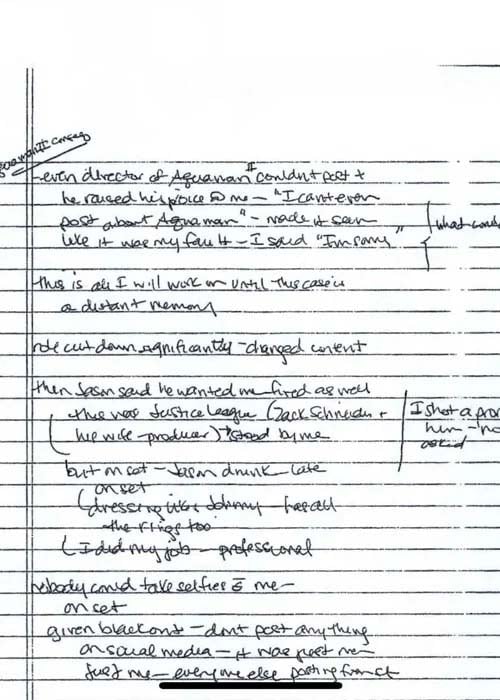 Aquaman II consequ
-even director of Aquaman II couldn't post +
he raised his voice @ me - "I can't even
post about Aquaman" - made it seem
like it was my fault - I said "I'm sorry"
this is all I will work on until this case is
a distant memory
role cut down significantly - changed content
then Jason said he wanted me fired as well
this was Justice League (Zack Schneider +
his wife - producer) → stood by me
I shot a
him
asked
but on set - Jason drunk - late
on set
dressing like Johnny - has all
the rings too
I did my job - professional
nobody could take selfies c̄ me -
on set
given blackout - don't post anything
on social media - it was just me -
just me - everyone else posting from